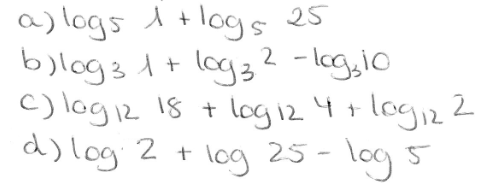 a) log₅ 1 + log₅ 25
b) log₃ 1 + log₃ 2 - log₃ 10
c) log₁₂ 18 + log₁₂ 4 + log₁₂ 2
d) log 2 + log 25 - log 5